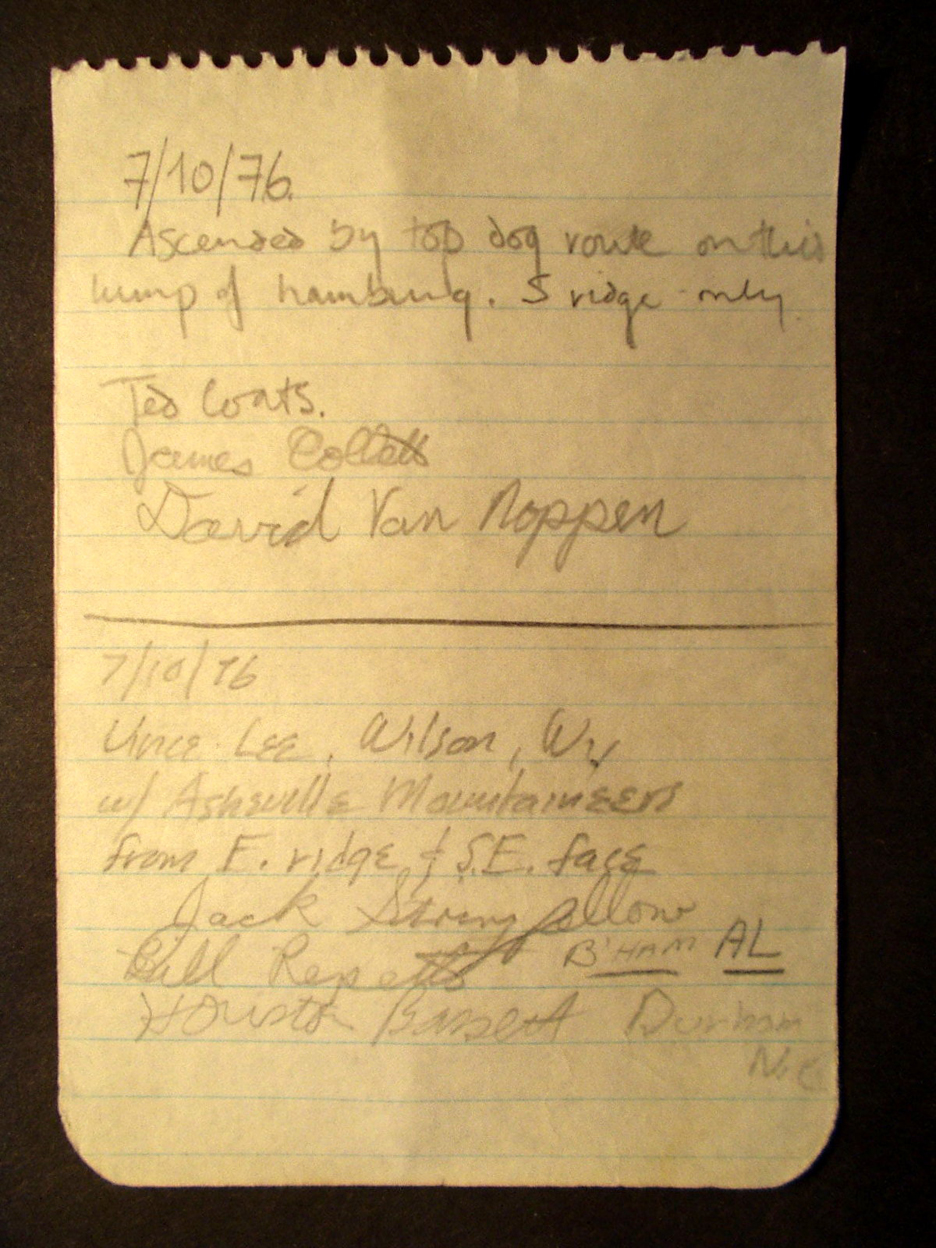 7/10/76.
Ascended by top dog route on this
lump of hamburg. S ridge only.
Ted Coats.
James Collett
David Van Noppen
7/10/76
Vince Lee, Wilson, Wy
w/ Asheville Mountaineers
from E. ridge & S.E. face
Jack Stringfellow
Bill Repetto B'HAM AL
Houston Bassett Durham
N.C